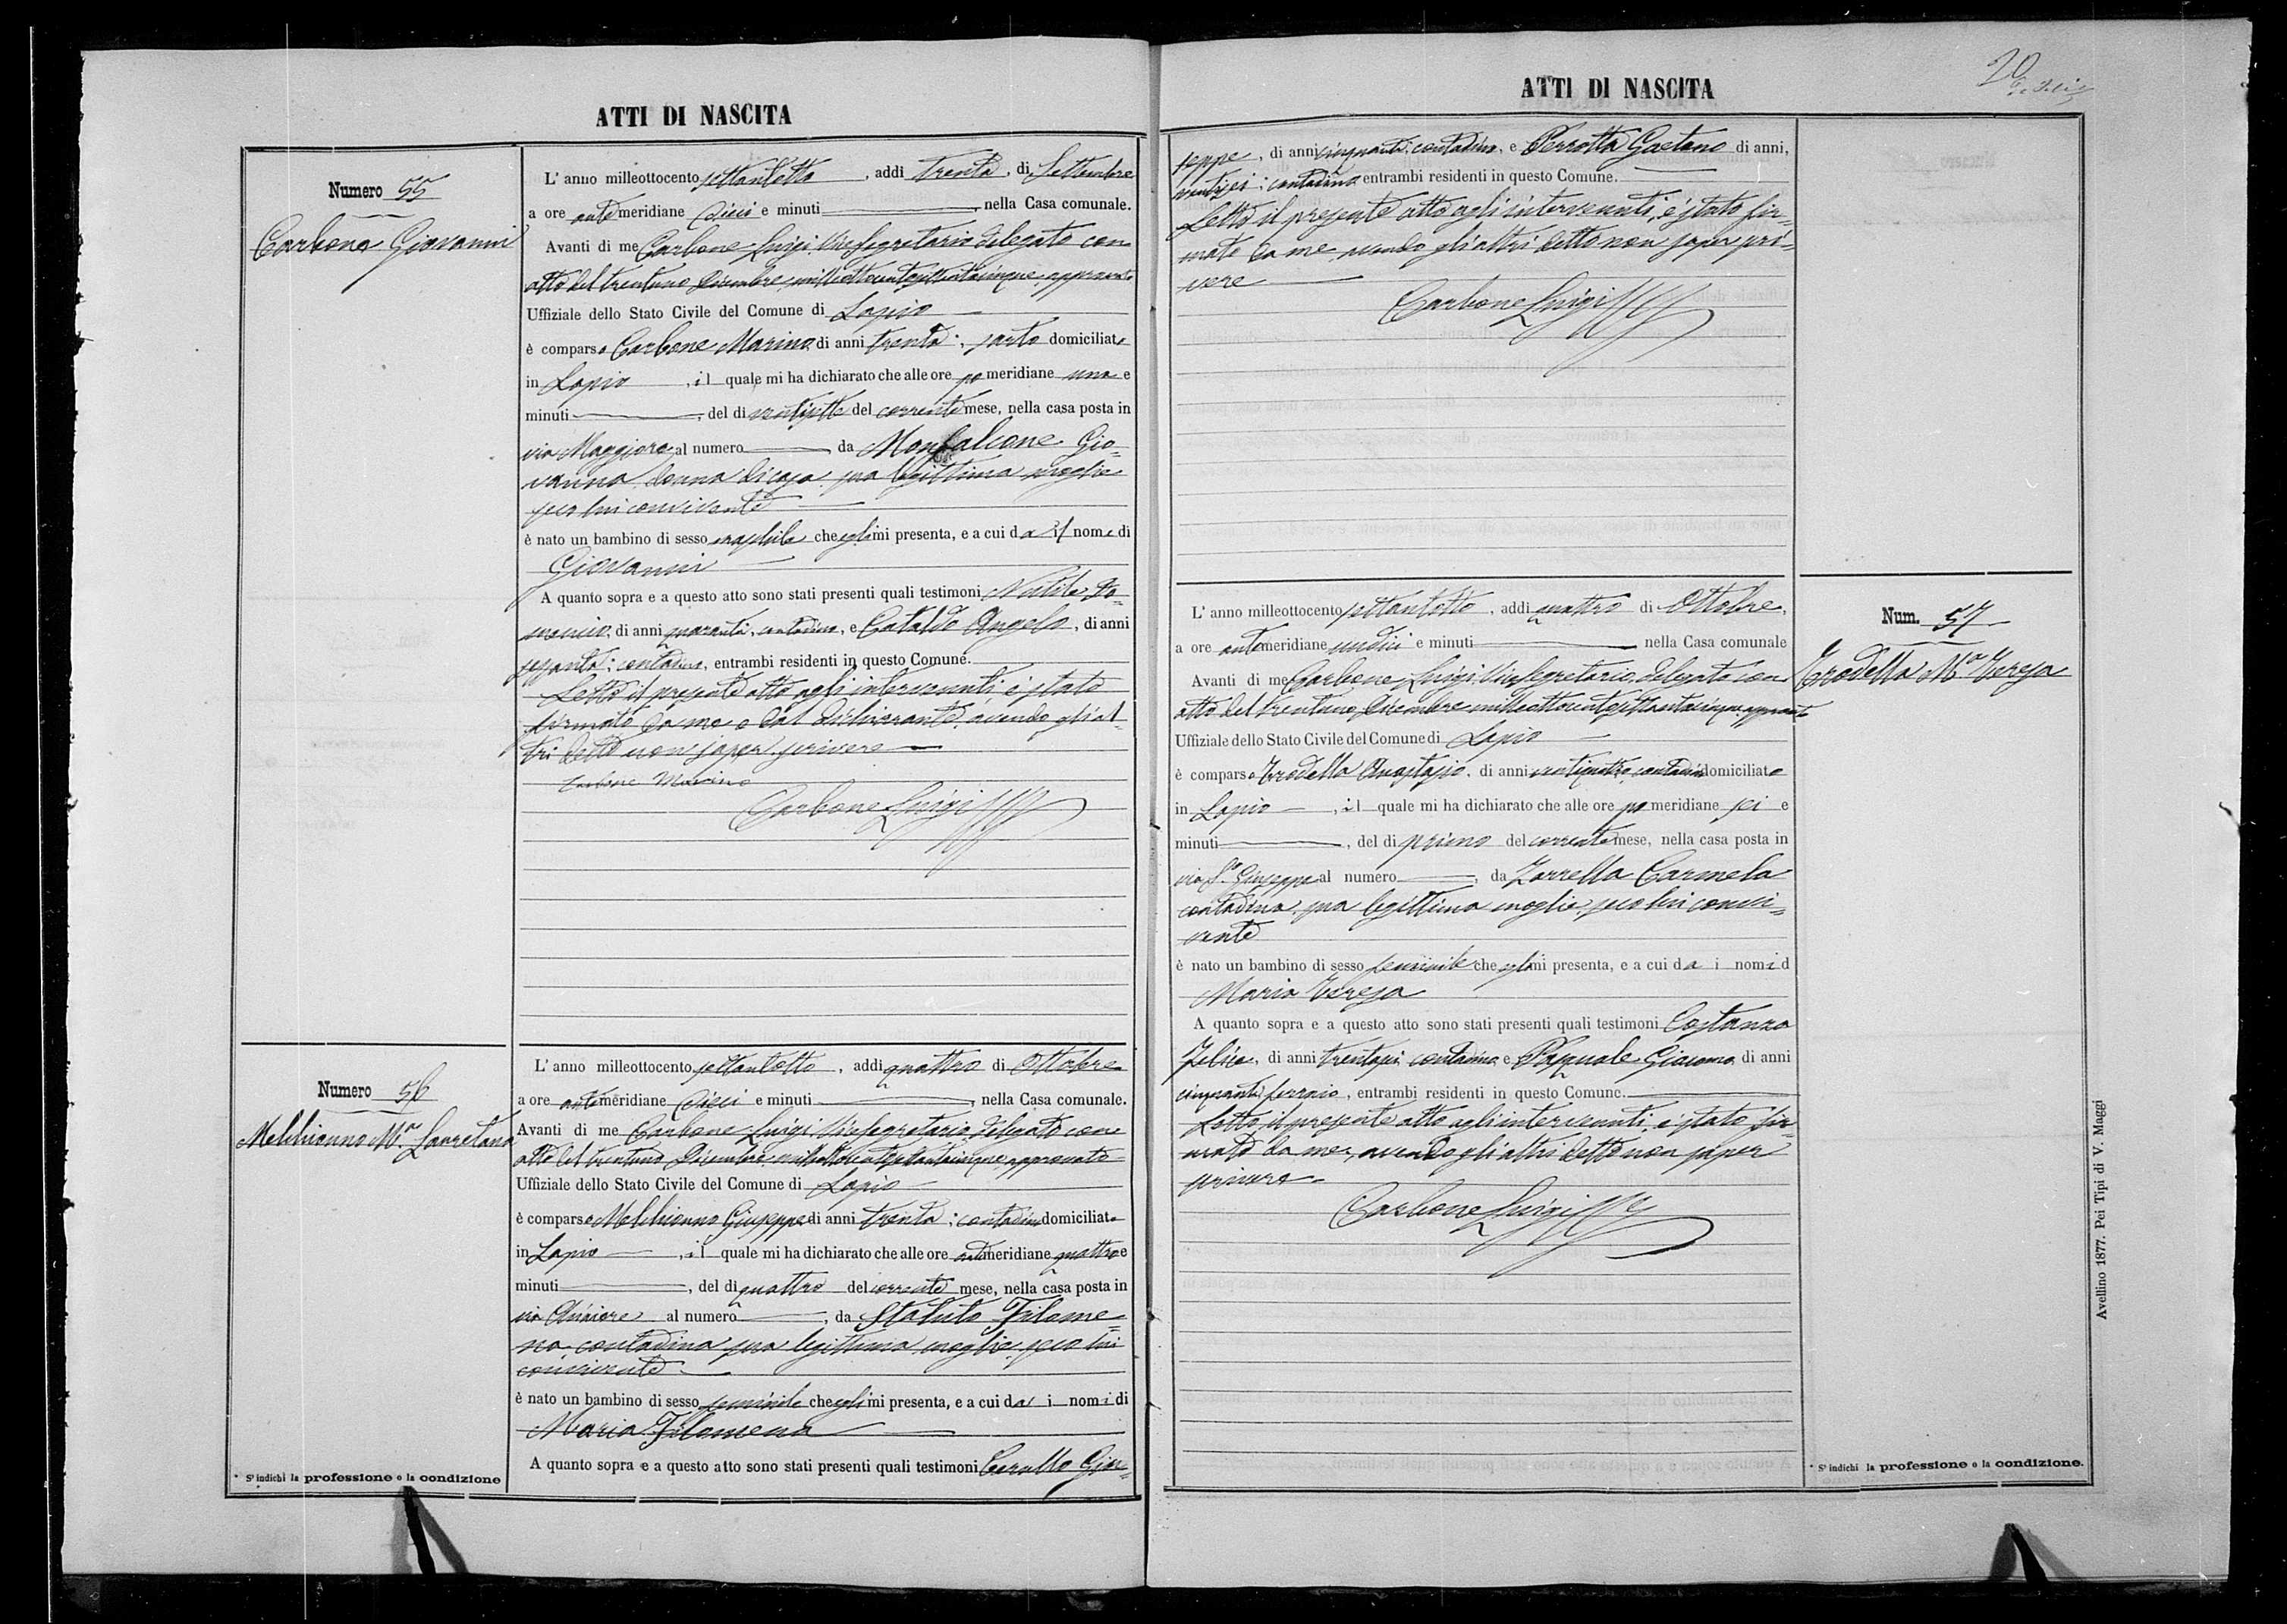 ATTI DI NASCITA
Numero 55
Carbone Giovanni
L' anno milleottocento settantotto, addì trenta, di Settembre
a ore antimeridiane dieci e minuti nella Casa comunale.
Avanti di me Carbone Luigi Vicesegretario delegato con
atto del trentuno Dicembre milleottocentosettantacinque approvato
Uffiziale dello Stato Civile del Comune di Lapio
è comparso Carbone Marino di anni trenta, sarto domiciliato
in Lapio, il quale mi ha dichiarato che alle ore pomeridiane una e
minuti, del dì ventisette del corrente mese, nella casa posta in
via Maggiore al numero da Monfalcone Gio=
vanna donna di casa sua legittima moglie
seco lui convivente
è nato un bambino di sesso maschile che egli mi presenta, e a cui da il nome di
Giovanni
A quanto sopra e a questo atto sono stati presenti quali testimoni
di anni quaranta, contadino, e Cataldo Angelo, di anni
sessanta; contadino, entrambi residenti in questo Comune.
Letto il presente atto agli intervenuti, è stato
firmato da me e dal dichiarante avendo gli al=
tri detto non saper scrivere
Carbone Marino
Carbone Luigi
Numero 56
Melchionno Mª Lauretana
L' anno milleottocento settantotto, addì quattro di Ottobre
a ore antimeridiane dieci e minuti, nella Casa comunale.
Avanti di me Carbone Luigi Vicesegretario delegato con
atto del trentuno Dicembre milleottocentosettantacinque approvato
Uffiziale dello Stato Civile del Comune di Lapio
è comparso Melchionno Giuseppe di anni trenta; contadino domiciliato
in Lapio, il quale mi ha dichiarato che alle ore antimeridiane quattro e
minuti, del dì quattro del corrente mese, nella casa posta in
via al numero, da Statuto Filome=
na contadina sua legittima moglie seco lui
convivente
è nato un bambino di sesso feminile che egli mi presenta, e a cui da i nomi di
Maria Filomena
A quanto sopra e a questo atto sono stati presenti quali testimoni Cerullo Giu=
* S' indichi la professione o la condizione
ATTI DI NASCITA
20
seppe, di anni cinquanta, contadino, e Perrotta Gaetano di anni,
ventisei; contadino entrambi residenti in questo Comune.
Letto il presente atto agli intervenuti, è stato fir=
mato da me, avendo gli altri detto non saper scri=
vere
Carbone Luigi
Num. 57
Trodella Mª Teresa
L' anno milleottocento settantotto, addì quattro di Ottobre,
a ore antimeridiane undici e minuti nella Casa comunale
Avanti di me Carbone Luigi Vicesegretario delegato con
atto del trentuno Dicembre milleottocentosettantacinque approvato
Uffiziale dello Stato Civile del Comune di Lapio
è comparso Trodella Anastasio, di anni ventiquattro, contadino domiciliato
in Lapio, il quale mi ha dichiarato che alle ore pomeridiane sei e
minuti, del dì primo del corrente mese, nella casa posta in
via S. Giuseppe al numero, da Zarrella Carmela
contadina sua legittima moglie seco lui convi=
vente
è nato un bambino di sesso feminile che egli mi presenta, e a cui da i nomi d
Maria Teresa
A quanto sopra e a questo atto sono stati presenti quali testimoni Costanzo
Felice, di anni trentasei contadino e Pasquale Giacomo di anni
cinquanta ferraio, entrambi residenti in questo Comune.
Letto il presente atto agli intervenuti, è stato fir=
mato da me, avendo gli altri detto non saper
scrivere
Carbone Luigi
Avellino 1877. Pei Tipi di V. Maggi
* S' indichi la professione o la condizione.